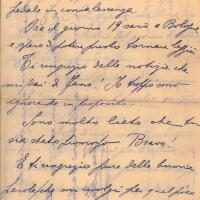 pedale in convalescenza.
Pra il giorno 19 sarò a Bologna
e spero di poter presto tornare leggio
Ti ringrazio delle notizie che
mi dai di Jano! Io tutto sono
ignorante in proposito.
Sono molto lieto che tu
sia stato promosso Bravo!
E ti ringrazio pure delle buone
parole che mi rivolgi per quel poco